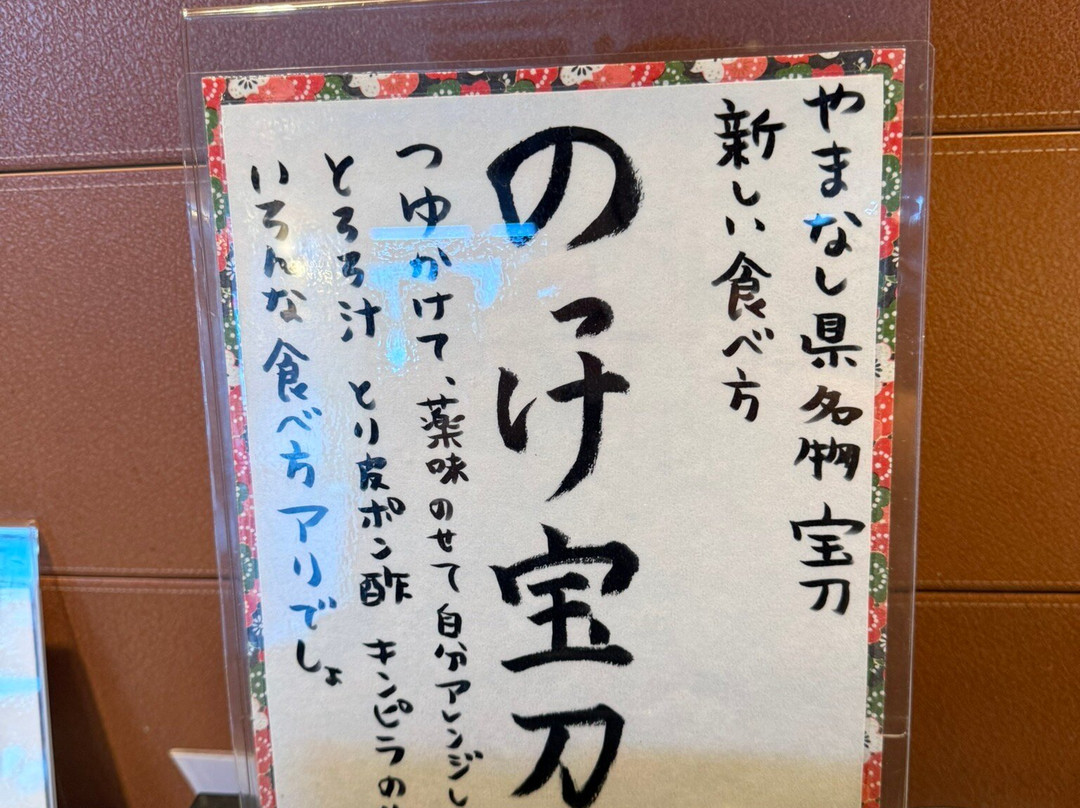 やまなし県名物 宝刀
新しい食べ方
のっけ宝刀
つゆかけて、薬味のせて自分アレンジし
とろろ汁 とり皮ポン酢 キンピラの
いろんな食べ方アリでしょ